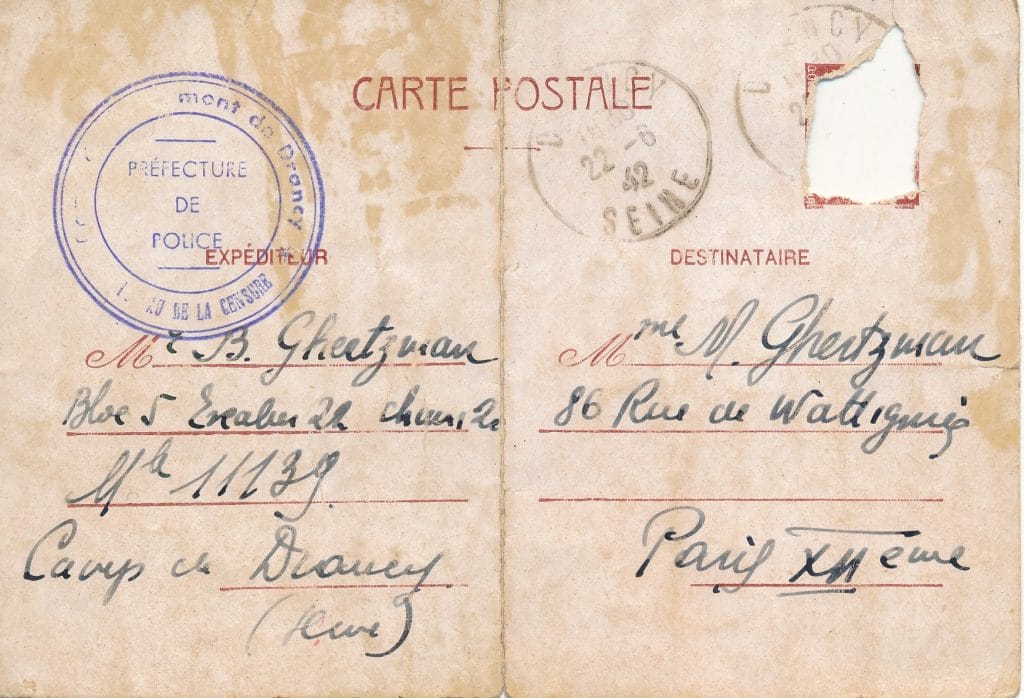 CARTE POSTALE
mont de Drancy
PRÉFECTURE
DE
POLICE
DE LA CENSURE
22 -6
42
SEINE
EXPÉDITEUR
Mr B. Ghertzman
Bloc 5 Escalier 22
Mle 11139
Camp de Drancy
(Seine)
DESTINATAIRE
Mme M. Ghertzman
86 Rue de Wattignies
Paris XIIème